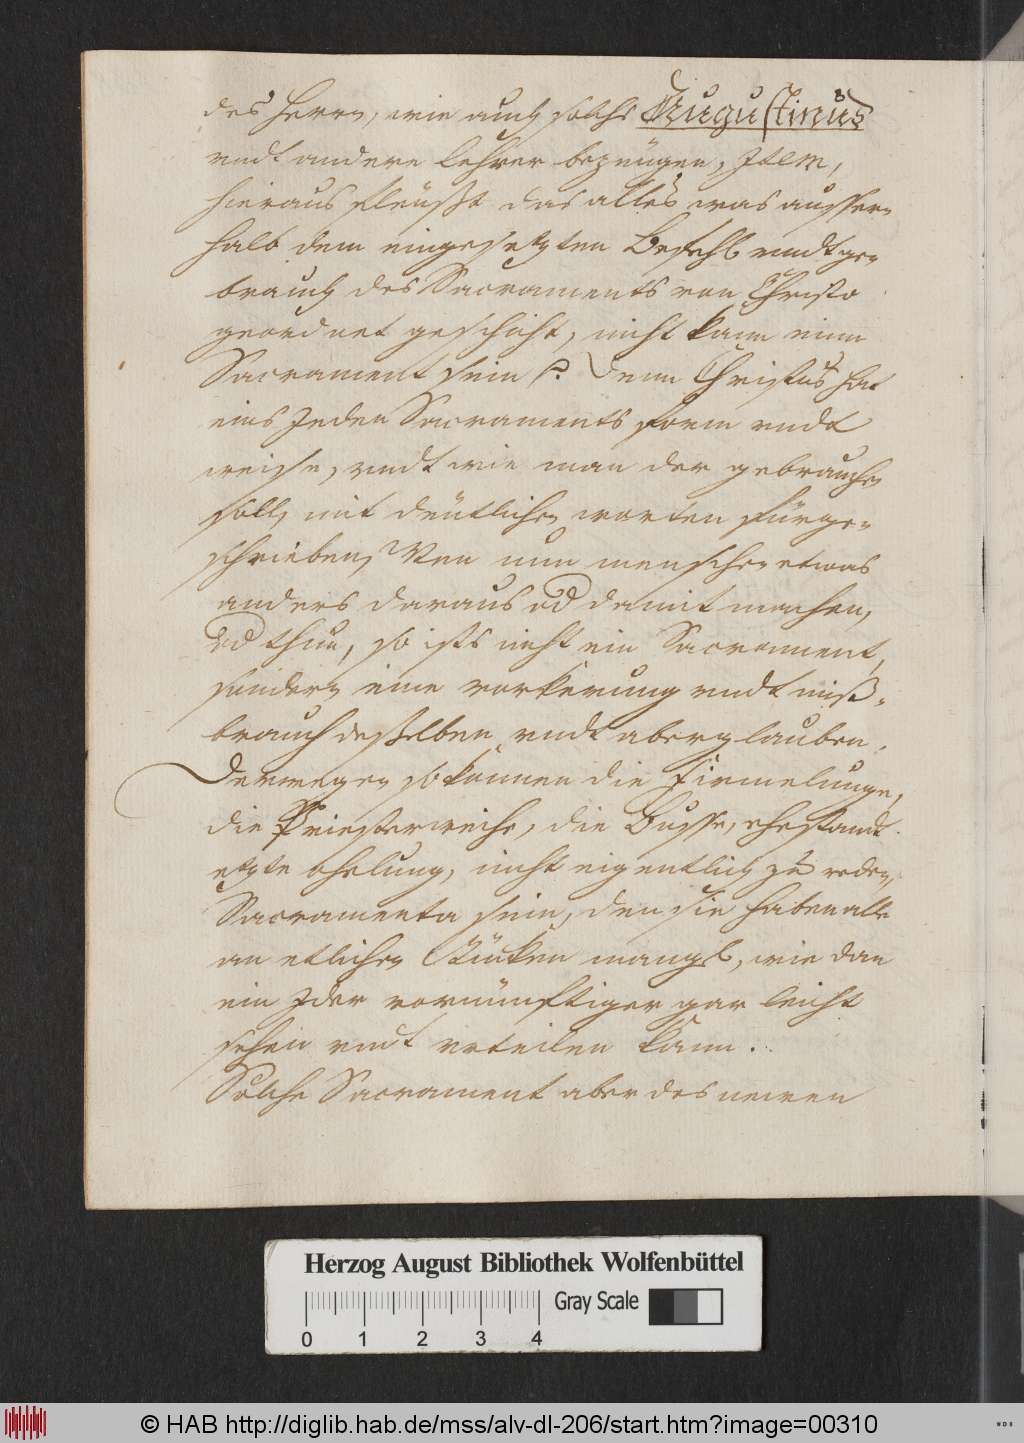 des Herrn, wie auch solchs Augustinus
vndt andere Lehrer bezeügen, Item,
hieraus fleüßt das alles was ausser-
halb dem eingesetzten Befehl vndt ge-
brauch des Sacraments von Christo
geordnet geschicht, nicht kann einn
Sacrament sein. Denn Christus hat
eins Jeden Sacraments form vndt
weise, vndt wie man der gebrauchen
soll, mit deütlichen worten fürge-
schrieben, Wen nun menschen etwas
anders daraus od damit machen,
od thun, so ists nicht ein Sacrament,
sondern eine vorkerung vndt miß-
brauch desselben vndt aberglauben.
Derwegen so können die Firmelunge,
die Priesterweihe, die Busse, ehestandt
etzte ohelung, nicht eigentlich zu reden,
Sacramenta sein, den sie haben alle
an etlichen Stücken mangel, wie dan
ein Jder vornünftiger gar leicht
sehen vndt vrteilen kann.
Solche Sacrament aber des neuen
Herzog August Bibliothek Wolfenbüttel
0 1 2 3 4 Gray Scale
© HAB http://diglib.hab.de/mss/alv-dl-206/start.htm?image=00310